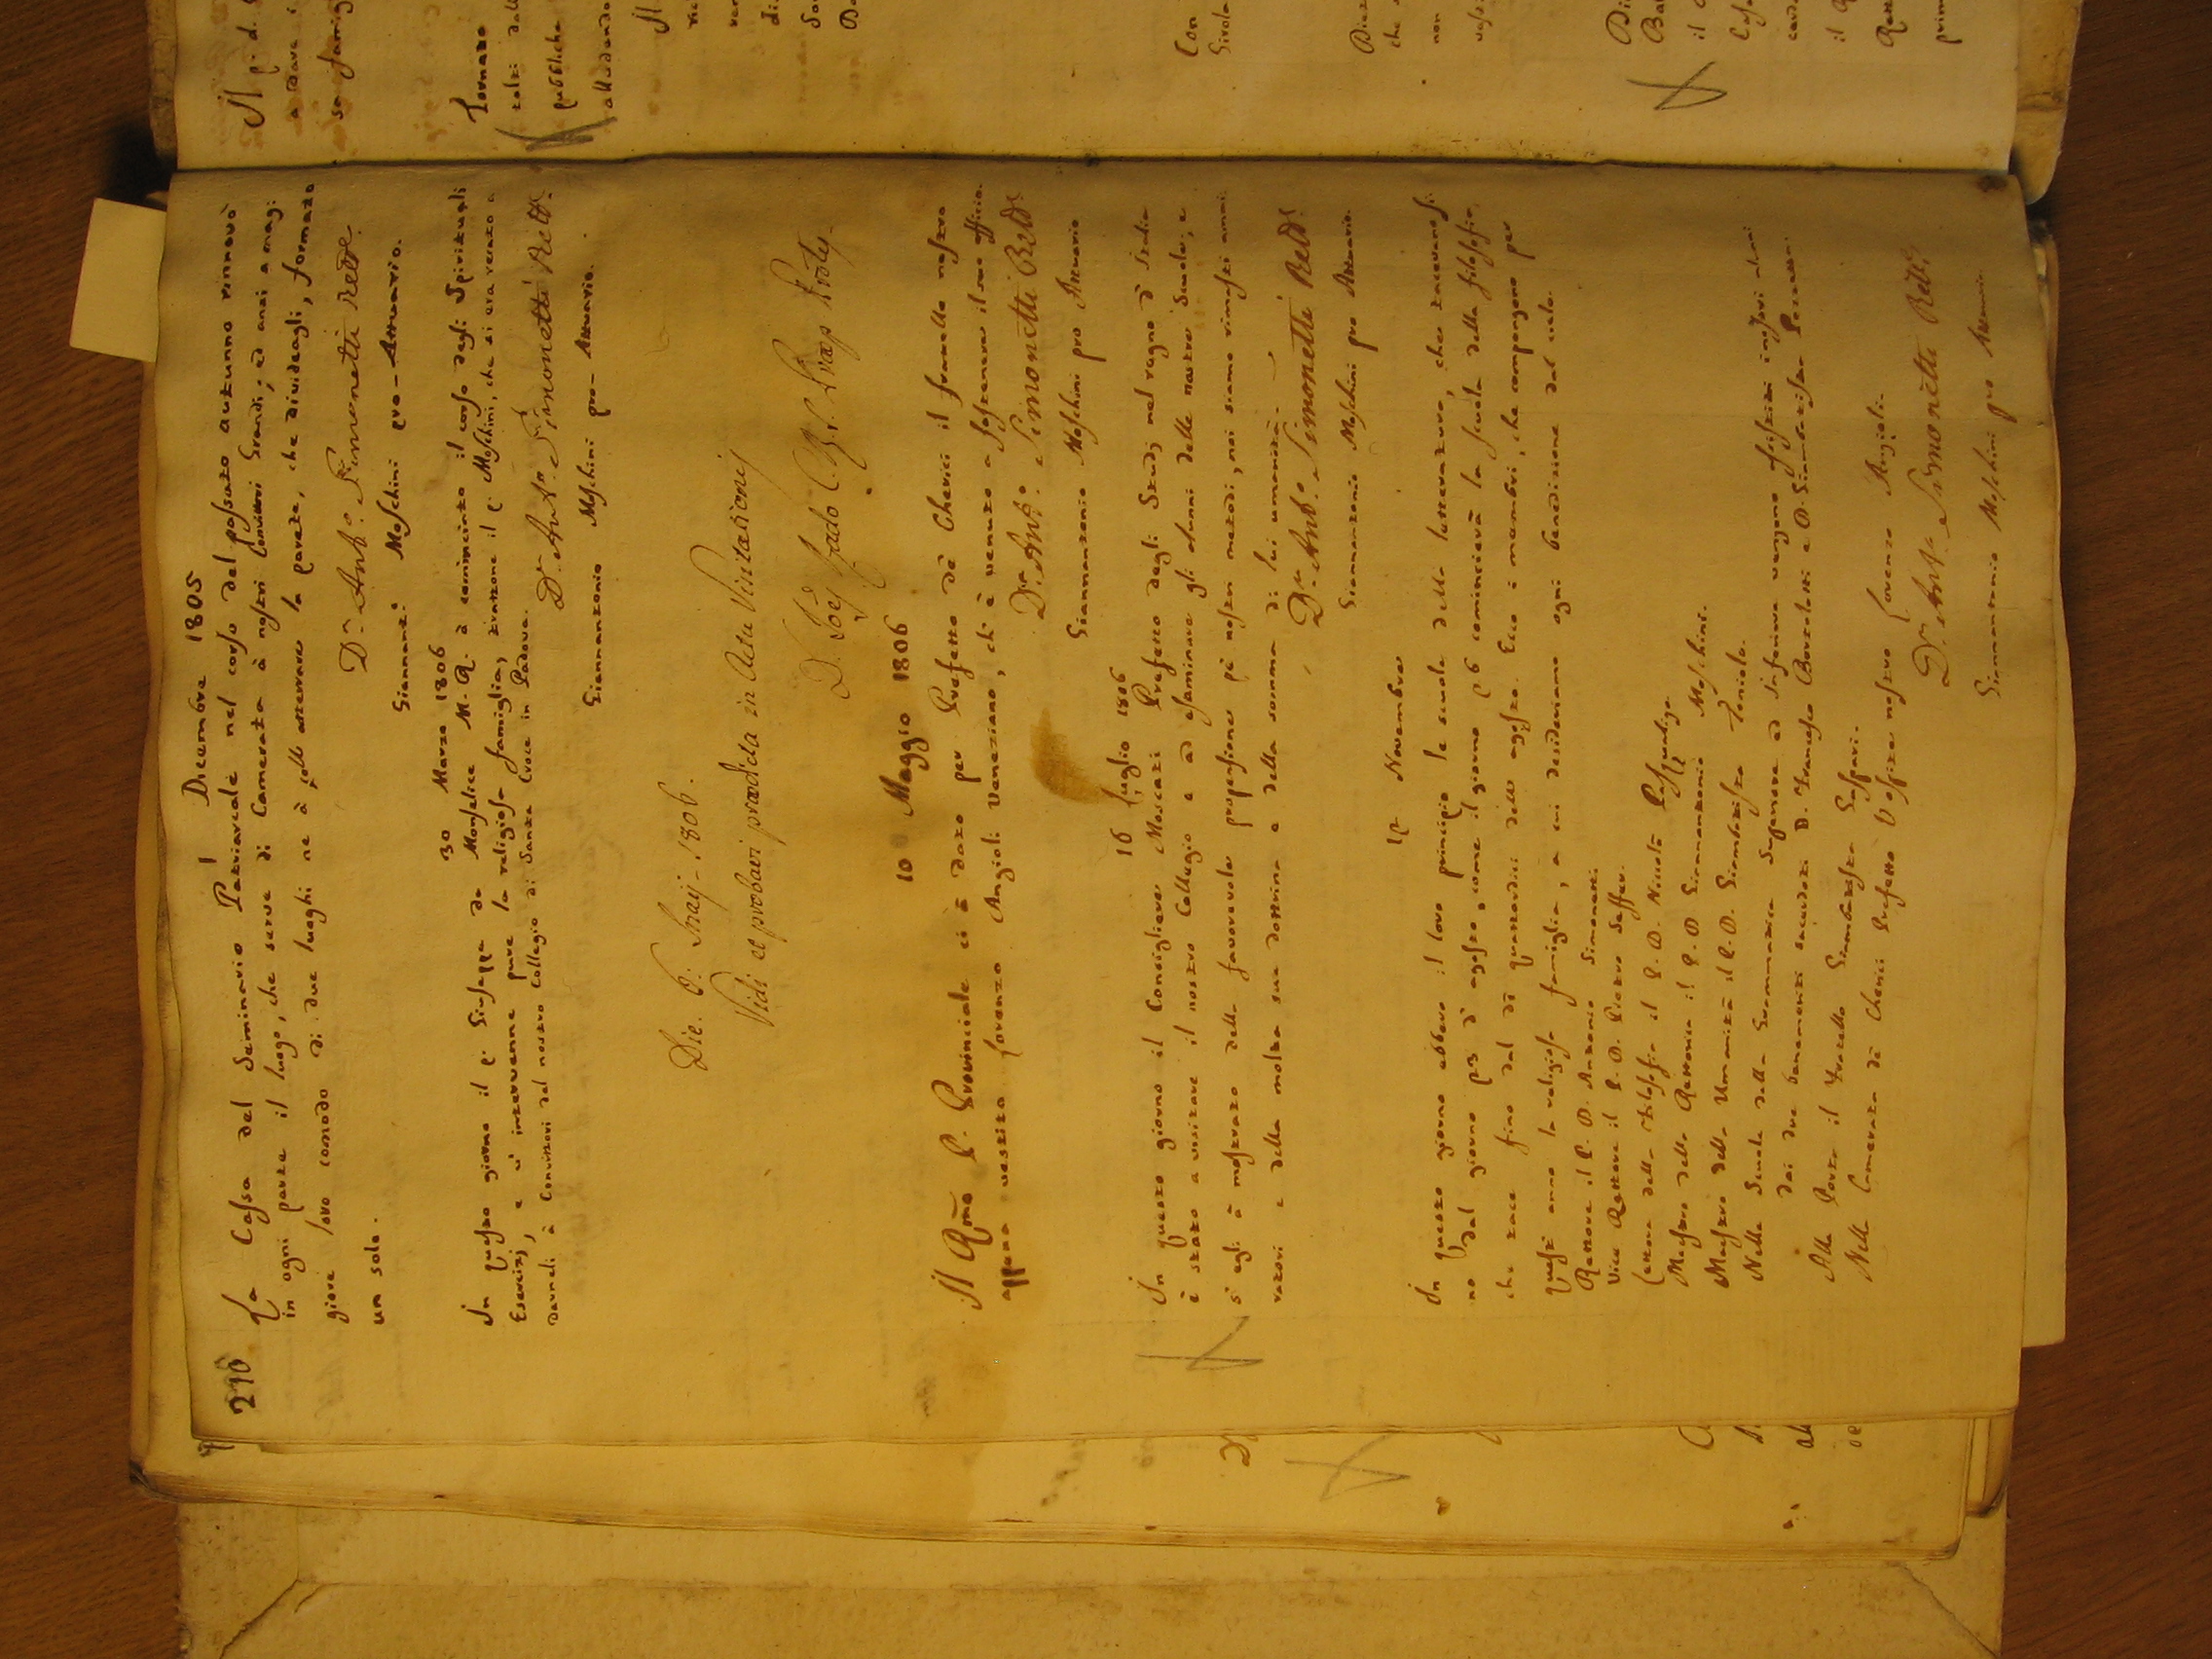 210
1 Dicembre 1805
La Casa del Seminario Patriarcale nel corso del passato autunno rinnovò
in ogni parte il luogo, che serve di Camerata à nostri Convittori Grandi; ed anzi a mag:
giore loro comodo di due luoghi ne à fatto atterrare la parete, che divideagli, formato
un solo.
Dn Anto. Simonetti Rettre.
Giannant: Moschini pro-Attuario.
30 Marzo 1806
In questo giorno il p: Giuseppe da Monselice M. R. à cominciato il corso degli Spirituali
Esercizj, e v' intervenne pure la religiosa famiglia, trattone il p: Moschini, che si era recato a
darneli à Convittori del nostro Collegio di Santa Croce in Padova.
Dn Anto. Simonetti Rettr.
Giannantonio Moschini pro-Attuario.
Die. 6: Maij - 1806.
Vidi et probavi prædicta in Actu Visitationis
D. Joēs Prado C.R.S. Præp Provlis
10 Maggio 1806
Il Rmo P. Provinciale ci à dato per Prefetto de' Cherici il fratello nostro
appena vestito Lorenzo Angioli Veneziano, ch' è venuto a sostenere il suo officio.
Dn Anto. Simonetti Rettr.
Giannantonio Moschini pro Attuario
16 Luglio 1806
In questo giorno il Consigliere Moscati Prefetto degli Studj nel regno d' Italia
è stato a visitare il nostro Collegio e ad esaminare gli alunni delle nostre Scuole; e
s' egli à mostrato della favorevole propensione pe' nostri metodi, noi siamo rimasti ammi
ratori e della molta sua dottrina e della somma di lui umanità.
Dn Anto. Simonetti Rettr.
Giannantonio Moschini pro Attuario.
17 Novembre
In questo giorno ebbero il loro principio le scuole della letteratura, che tacevano si:
no dal giorno 13 d' agosto, come il giorno 26 comincierà la scuola della filosofia,
che tace fino dal dì quattordici dello agosto. Ecco i membri, che compongono per
quest' anno la religiosa famiglia, a cui desideriamo ogni benedizione dal cielo.
Rettore il P. D. Antonio Simonetti.
Vice Rettore il P. D. Pietro Saffer.
Lettore della Filosofia il P. D. Nicolò
Maestro della Rettorica il P. D. Giannantonio Moschini.
Maestro della Umanità il P. D. Giambatista Toniolo.
Nelle Scuole della Grammatica Superiore ed Inferiore vengono assistiti i nostri alunni
dai due benemeriti sacerdoti D. Francesco Bortoletti e D. Giambatista
Alla Porta il Fratello Giambatista Gaspari.
Nella Camerata de' Cherici Prefetto l' Ospite nostro Lorenzo Angioli.
Dn Anto. Simonetti Rettr.
Giannantonio Moschini pro Attuario